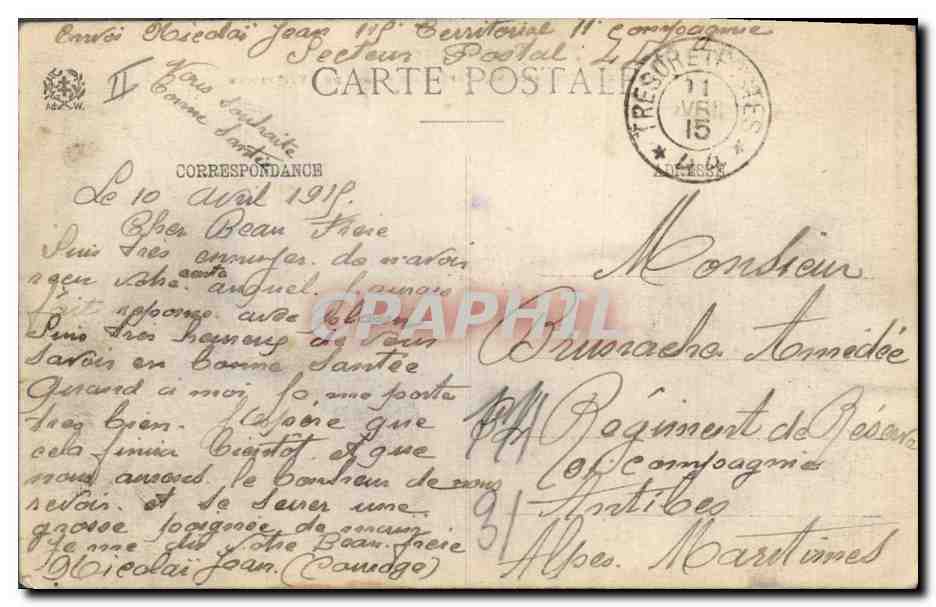 Envoi Nicolaï Jean 115e Territorial 11e Compagnie
Secteur Postal
CARTE POSTALE
II
Vous Souhaite
Bonne Santée
TRESOR ET POSTES
11
AVRIL
15
* 44 *
Ad. W.
CORRESPONDANCE
ADRESSE
Le 10 Avril 1915.
Cher Beau Frere
Suis très ennuyer de n'avoir
reçu votre carte auquel j'aurais
fait reponse avec
Suis très heureux de vous
savoir en bonne Santée
Quand a moi je me porte
tres bien. J'espère que
cela finira Bientôt et que
nous aurons le bonheur de nous
revoir et se serrer une
grosse poignée de main
Je me dis Votre Beau frere
Nicolaï Jean (Courage)
Monsieur
Brunache Amédée
Régiment de Réserve
Compagnie
Antibes
Alpes Maritimes
31
CPAPHIL